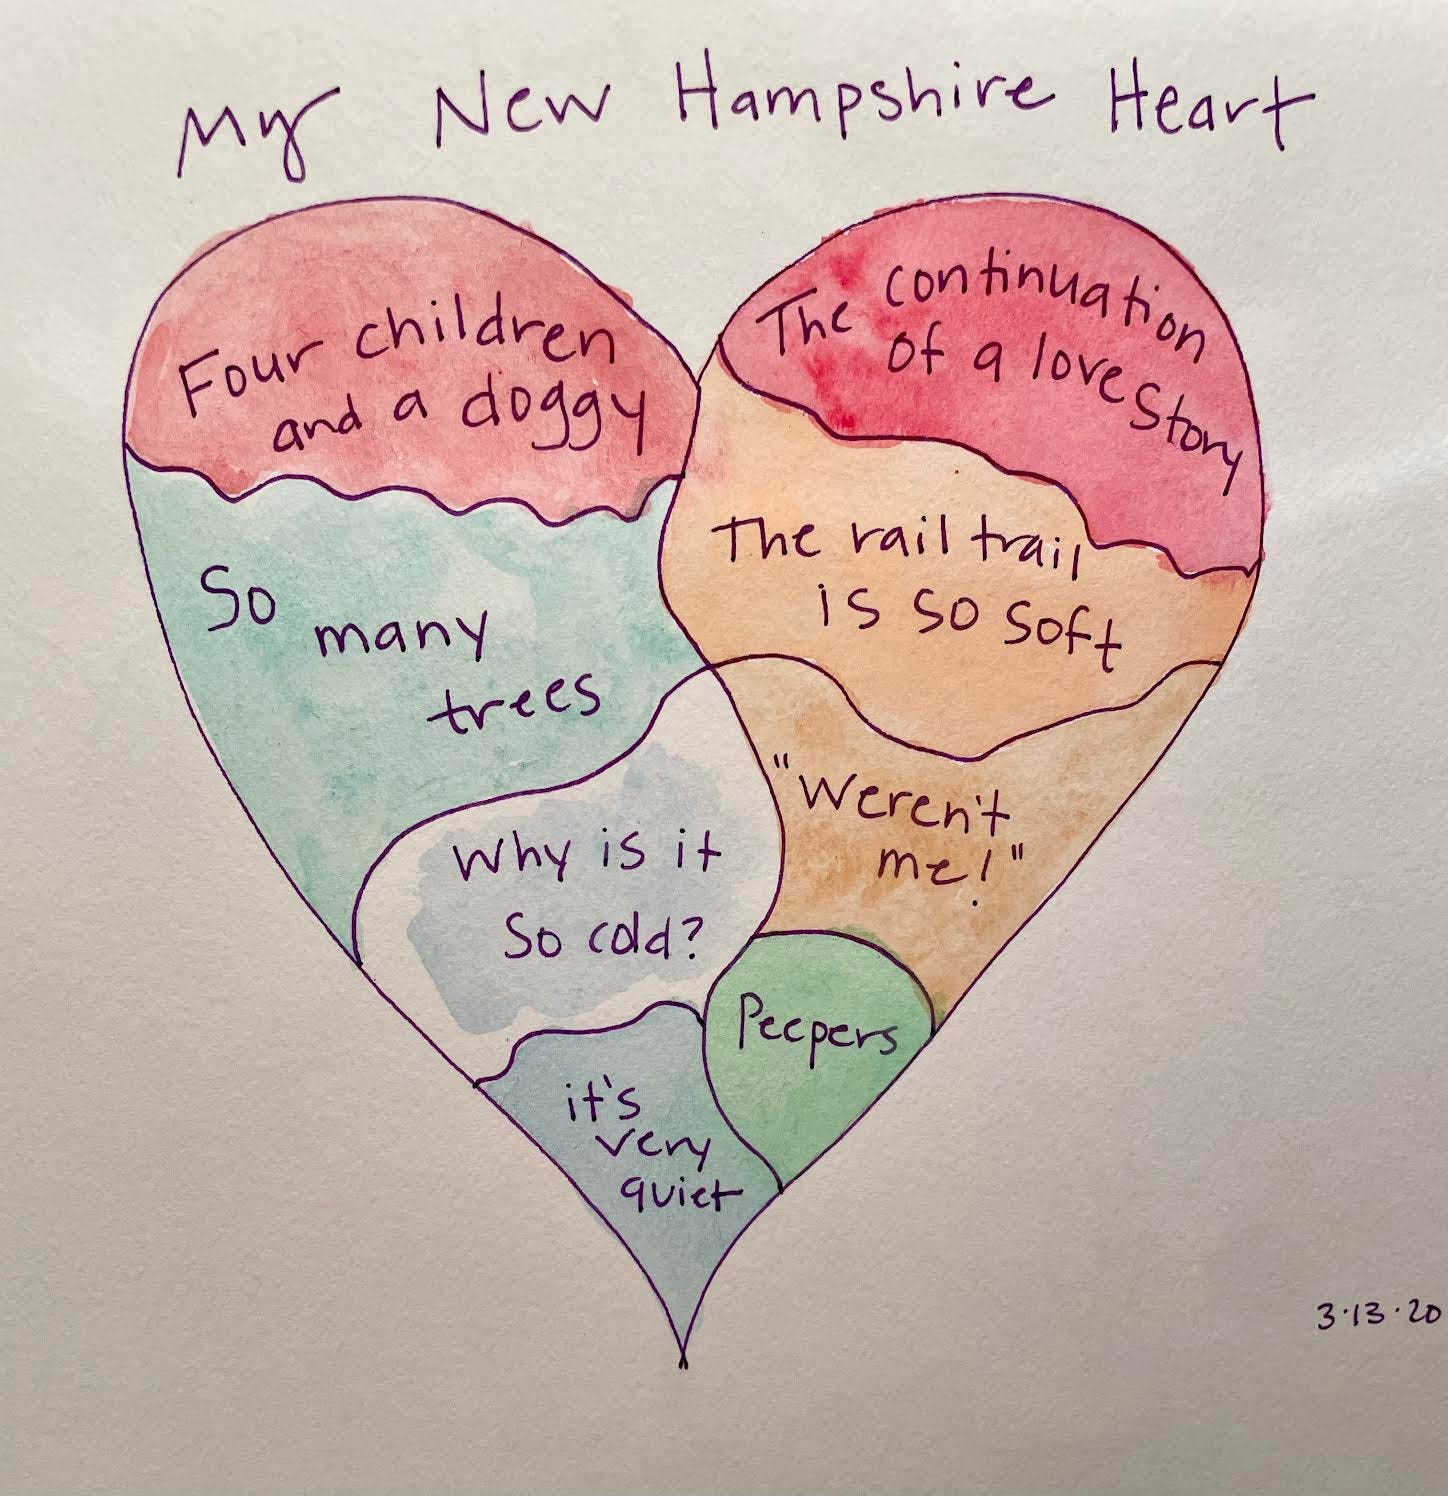 My New Hampshire Heart
Four children
and a doggy
The continuation
of a love story
So
many
trees
The rail trail
is so soft
Why is it
so cold?
"Weren't
me!"
Peepers
it's
very
quiet
3.13.20